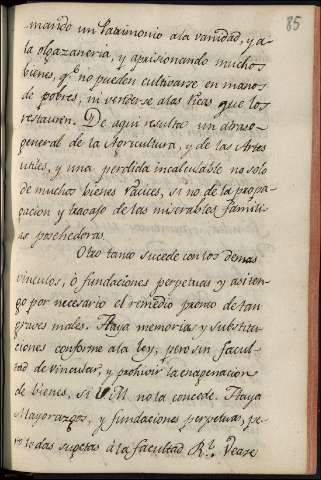 85
mando un Patrimonio a la vanidad, y a
la olgazaneria, y aprisionando muchos
bienes, qᵉ no pueden cultivarse en manos
de pobres, ni venderse a las ricas que los
restauren. De aqui resulta un atraso
general de la Agricultura, y de las Artes
utiles, y una perdida incalculable no solo
de muchos bienes raices, si no de la propa-
gacion y trabajo de las miserables Famili-
as poshehedoras.
Otro tanto sucede con los demas
vinculos, ò fundaciones perpetuas y asi ten-
go por necesario el remedio promto de tan
graves males. Haya memorias y substitu-
ciones conforme a la ley, pero sin facul-
tad de vincular, y prohivir la enagenacion
de bienes, si V.M. no la concede. Haya
Mayorazgos, y fundaciones perpetuas, pe-
ro todas sugetas à la facultad Rˡ. Dease